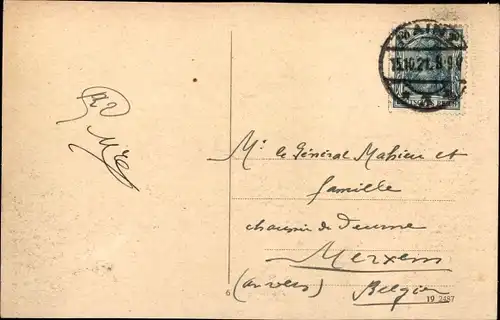 MAINZ
15.10.21. 8-9 V
Mr le Général Mahieu et
famille
chaussée de Deurne
Merxem
(Anvers) Belgien
6
19 2487